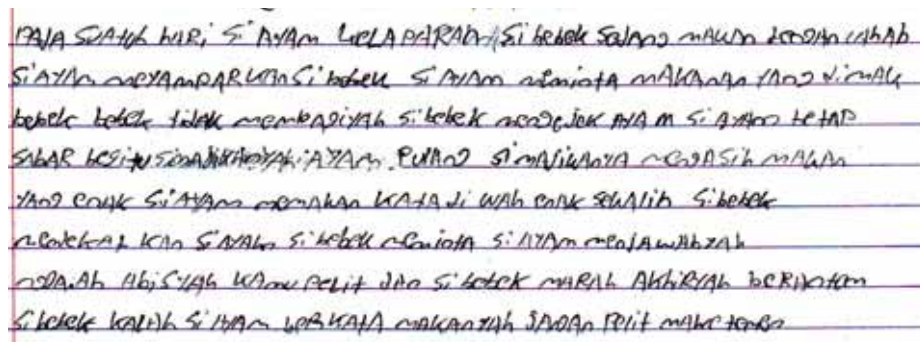 PADA SUATUH hARi Si AYAM KELAPARAN Si bebek SedAng mAkAn dengAn lahab
Si AYAm meyAmpARkAn Si bebek Si AYAm meminta mAkAnAn YAng di mAk
bebek bebek tidak membagiyAh Si bebek mengejek AYAm Si AYAm tetAp
SAbAR AYAm PulAng Si mAjikAnyA mengASih mAkAn
YAng enAk Si AYAm memAkAn KATA di wAh enAk SekAlih Si bebek
mendekAt kAn Si AYAm Si bebek meminta Si AYAm menjAwAbYAh
AbiSYAh KAmu PeLit dAn Si bebek mARAh AkhiRYAh beRAntem
Si bebek KALAh Si AYAm beRKATA mAkAnYAh JAngAn PeLit